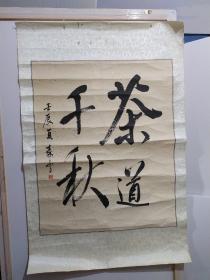 茶道
千秋
壬辰夏